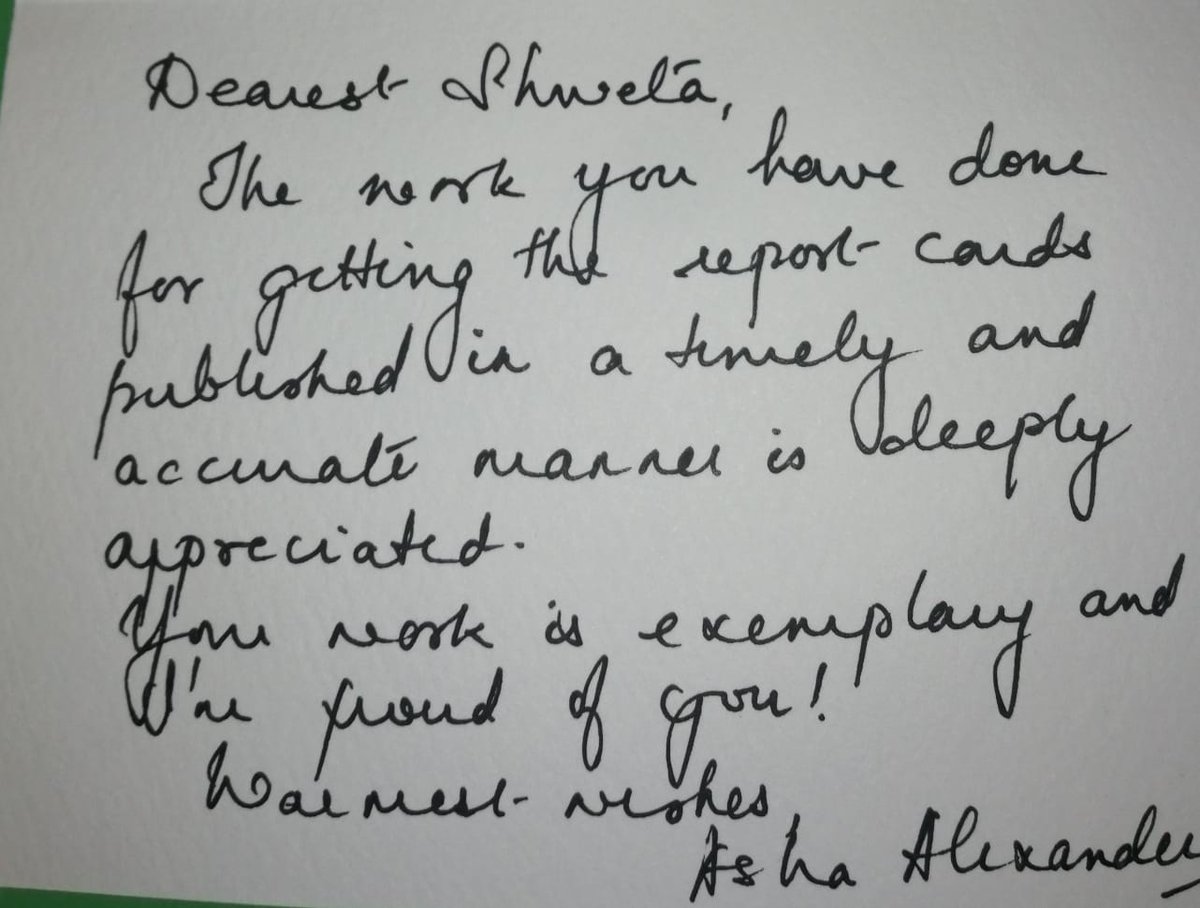 Dearest Shweta,
The work you have done
for getting the report cards
published in a timely and
accurate manner is deeply
appreciated.
Your work is exemplary and
I'm proud of you!
Warmest wishes,
Asha Alexander